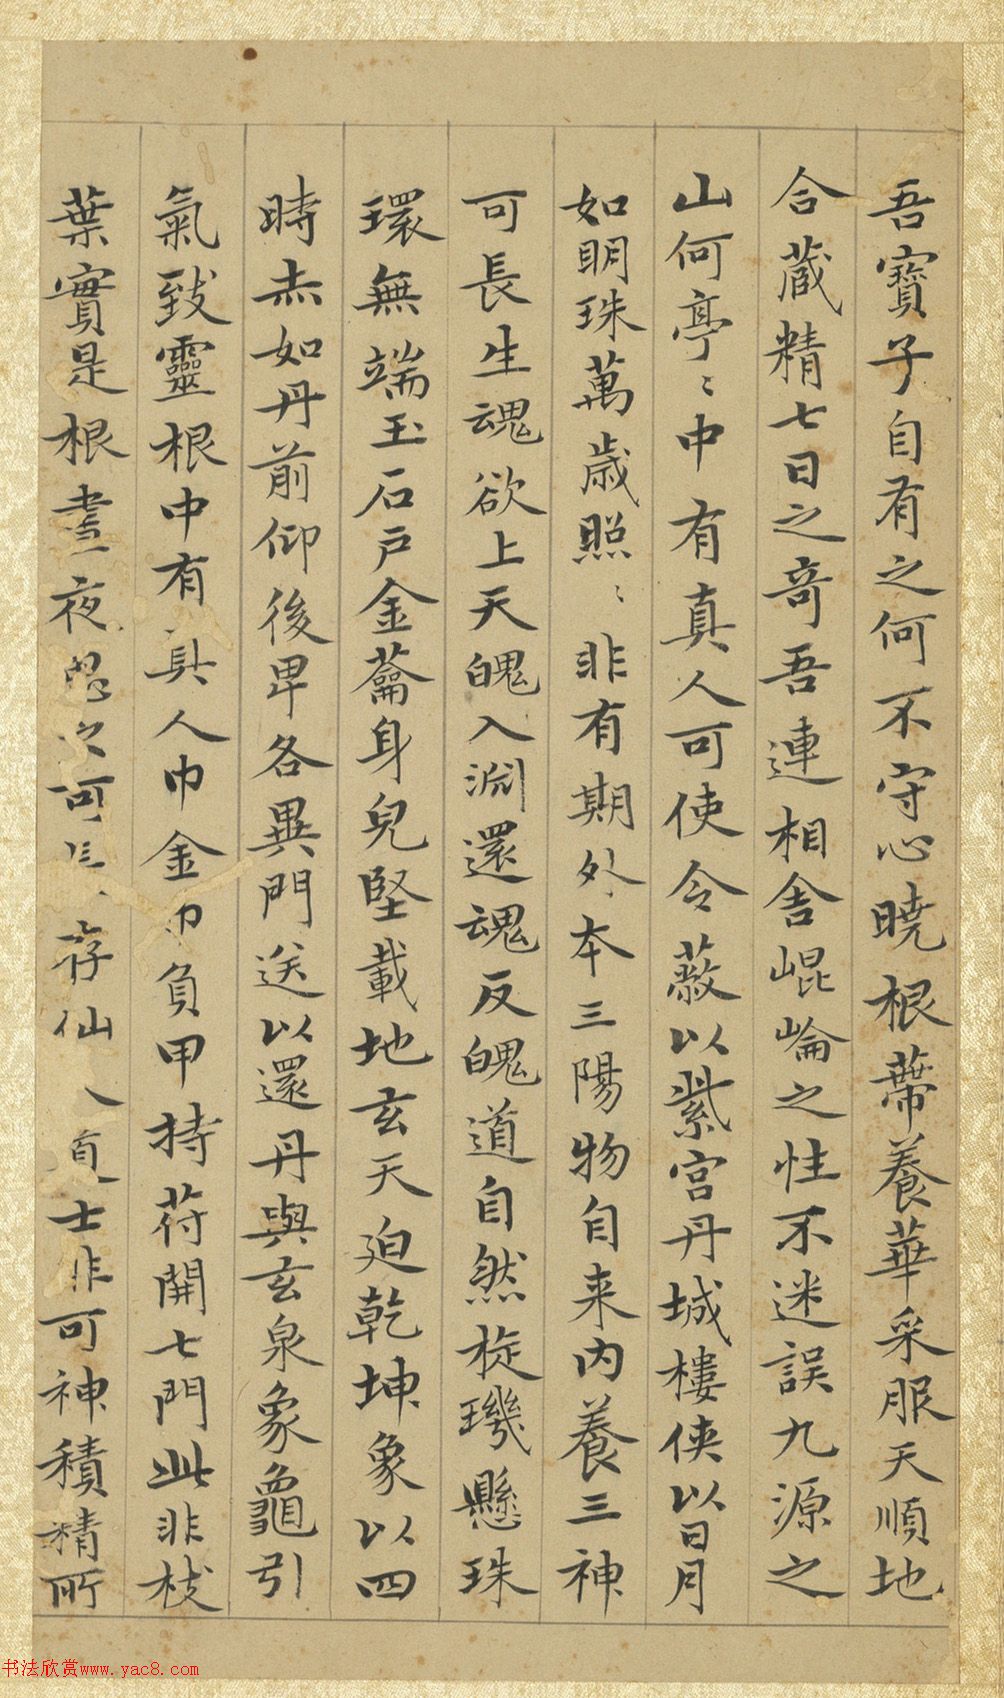 吾寶子自有之何不守心曉根蔕養華采服天順地
合藏精七日之竒吾連相舎崐崘之性不迷誤九源之
山何亭〻中有真人可使令蔽以紫宮丹城樓俠以日月
如明珠萬歳照〻非有期外本三陽物自来内養三神
可長生魂欲上天魄入淵還魂反魄道自然旋璣懸珠
環無端玉石戸金籥身皃堅載地玄天迫乾坤象以四
時赤如丹前仰後卑各異門送以還丹與玄泉象龜引
氣致靈根中有真人巾金巾負甲持苻開七門此非枝
葉實是根晝夜思之可長存仙人道士非可神積精所
书法欣赏www.yac8.com